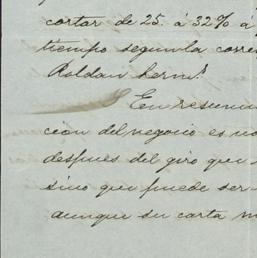 cortar de 25. á 32% á
tiempo segun la corres
Roldan herms
En resumen
cion del negocio es no
despues del giro que
sino que puede ser
aunque su carta m